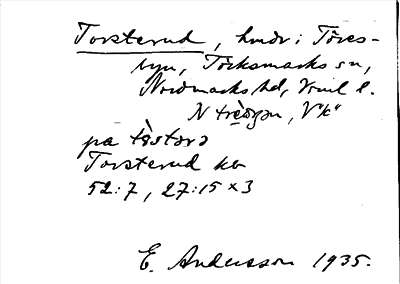 Torsterud, hmdr i Töres-
byn, Töcksmarks sn,
Nordmarks hd, Vrml l.
N treogen, V "k"
pa tåstarə
Torsterud kb
52:7, 27:15 x 3
E. Andersson 1935.